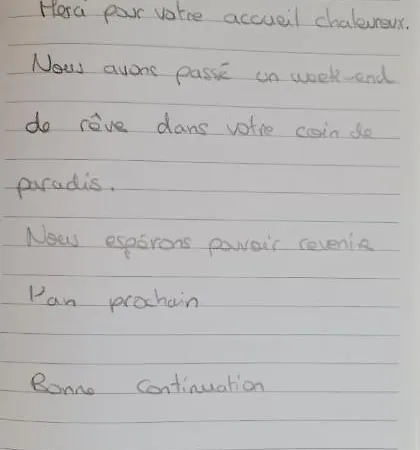 Merci pour votre accueil chaleureux.
Nous avons passé un week-end
de rêve dans votre coin de
paradis.
Nous espérons pouvoir revenir
l'an prochain
Bonne continuation